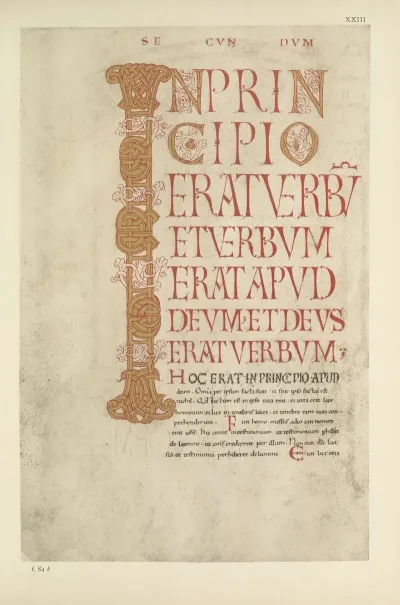 XXIII
SE CVN DVM
INPRIN
CIPIO
ERATVERBŪ
ETVERBVM
ERATAPVD
DEVM·ETDEVS
ERATVERBVM·
HOC ERAT IN PRINCIPIO APUD
deum. Omnia per ipsum facta sunt. et sine ipso est
factum est in ipso uita erat. et uita erat lux
hominum. et lux in tenebris lucet. et tenebre eam non com
prehenderunt. Fuit homo missus a deo cui nomen
erat hic uenit in testimonium. ut testimonium
de lumine. ut crederent per illum. Non erat ille lux
ut testimonium perhiberet de lumine. Erat lux uera
f. 84 b